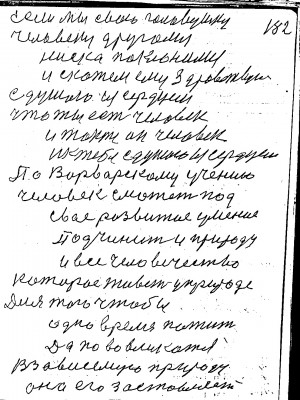 если мы свою головушку
182
человеку другому
низко поклоним
и скажем ему Здравствуй
с душою и сердцем
что ты есть человек
и также он человек
и к тебе с душою и сердцем
По Варварскому учению
человек сможет под
свае развитае умение
Подчинит и природу
и все человечество
которае живет у природе
Для того чтобы
одно время пажит
Да по
В зависемую природу
она его заставляет